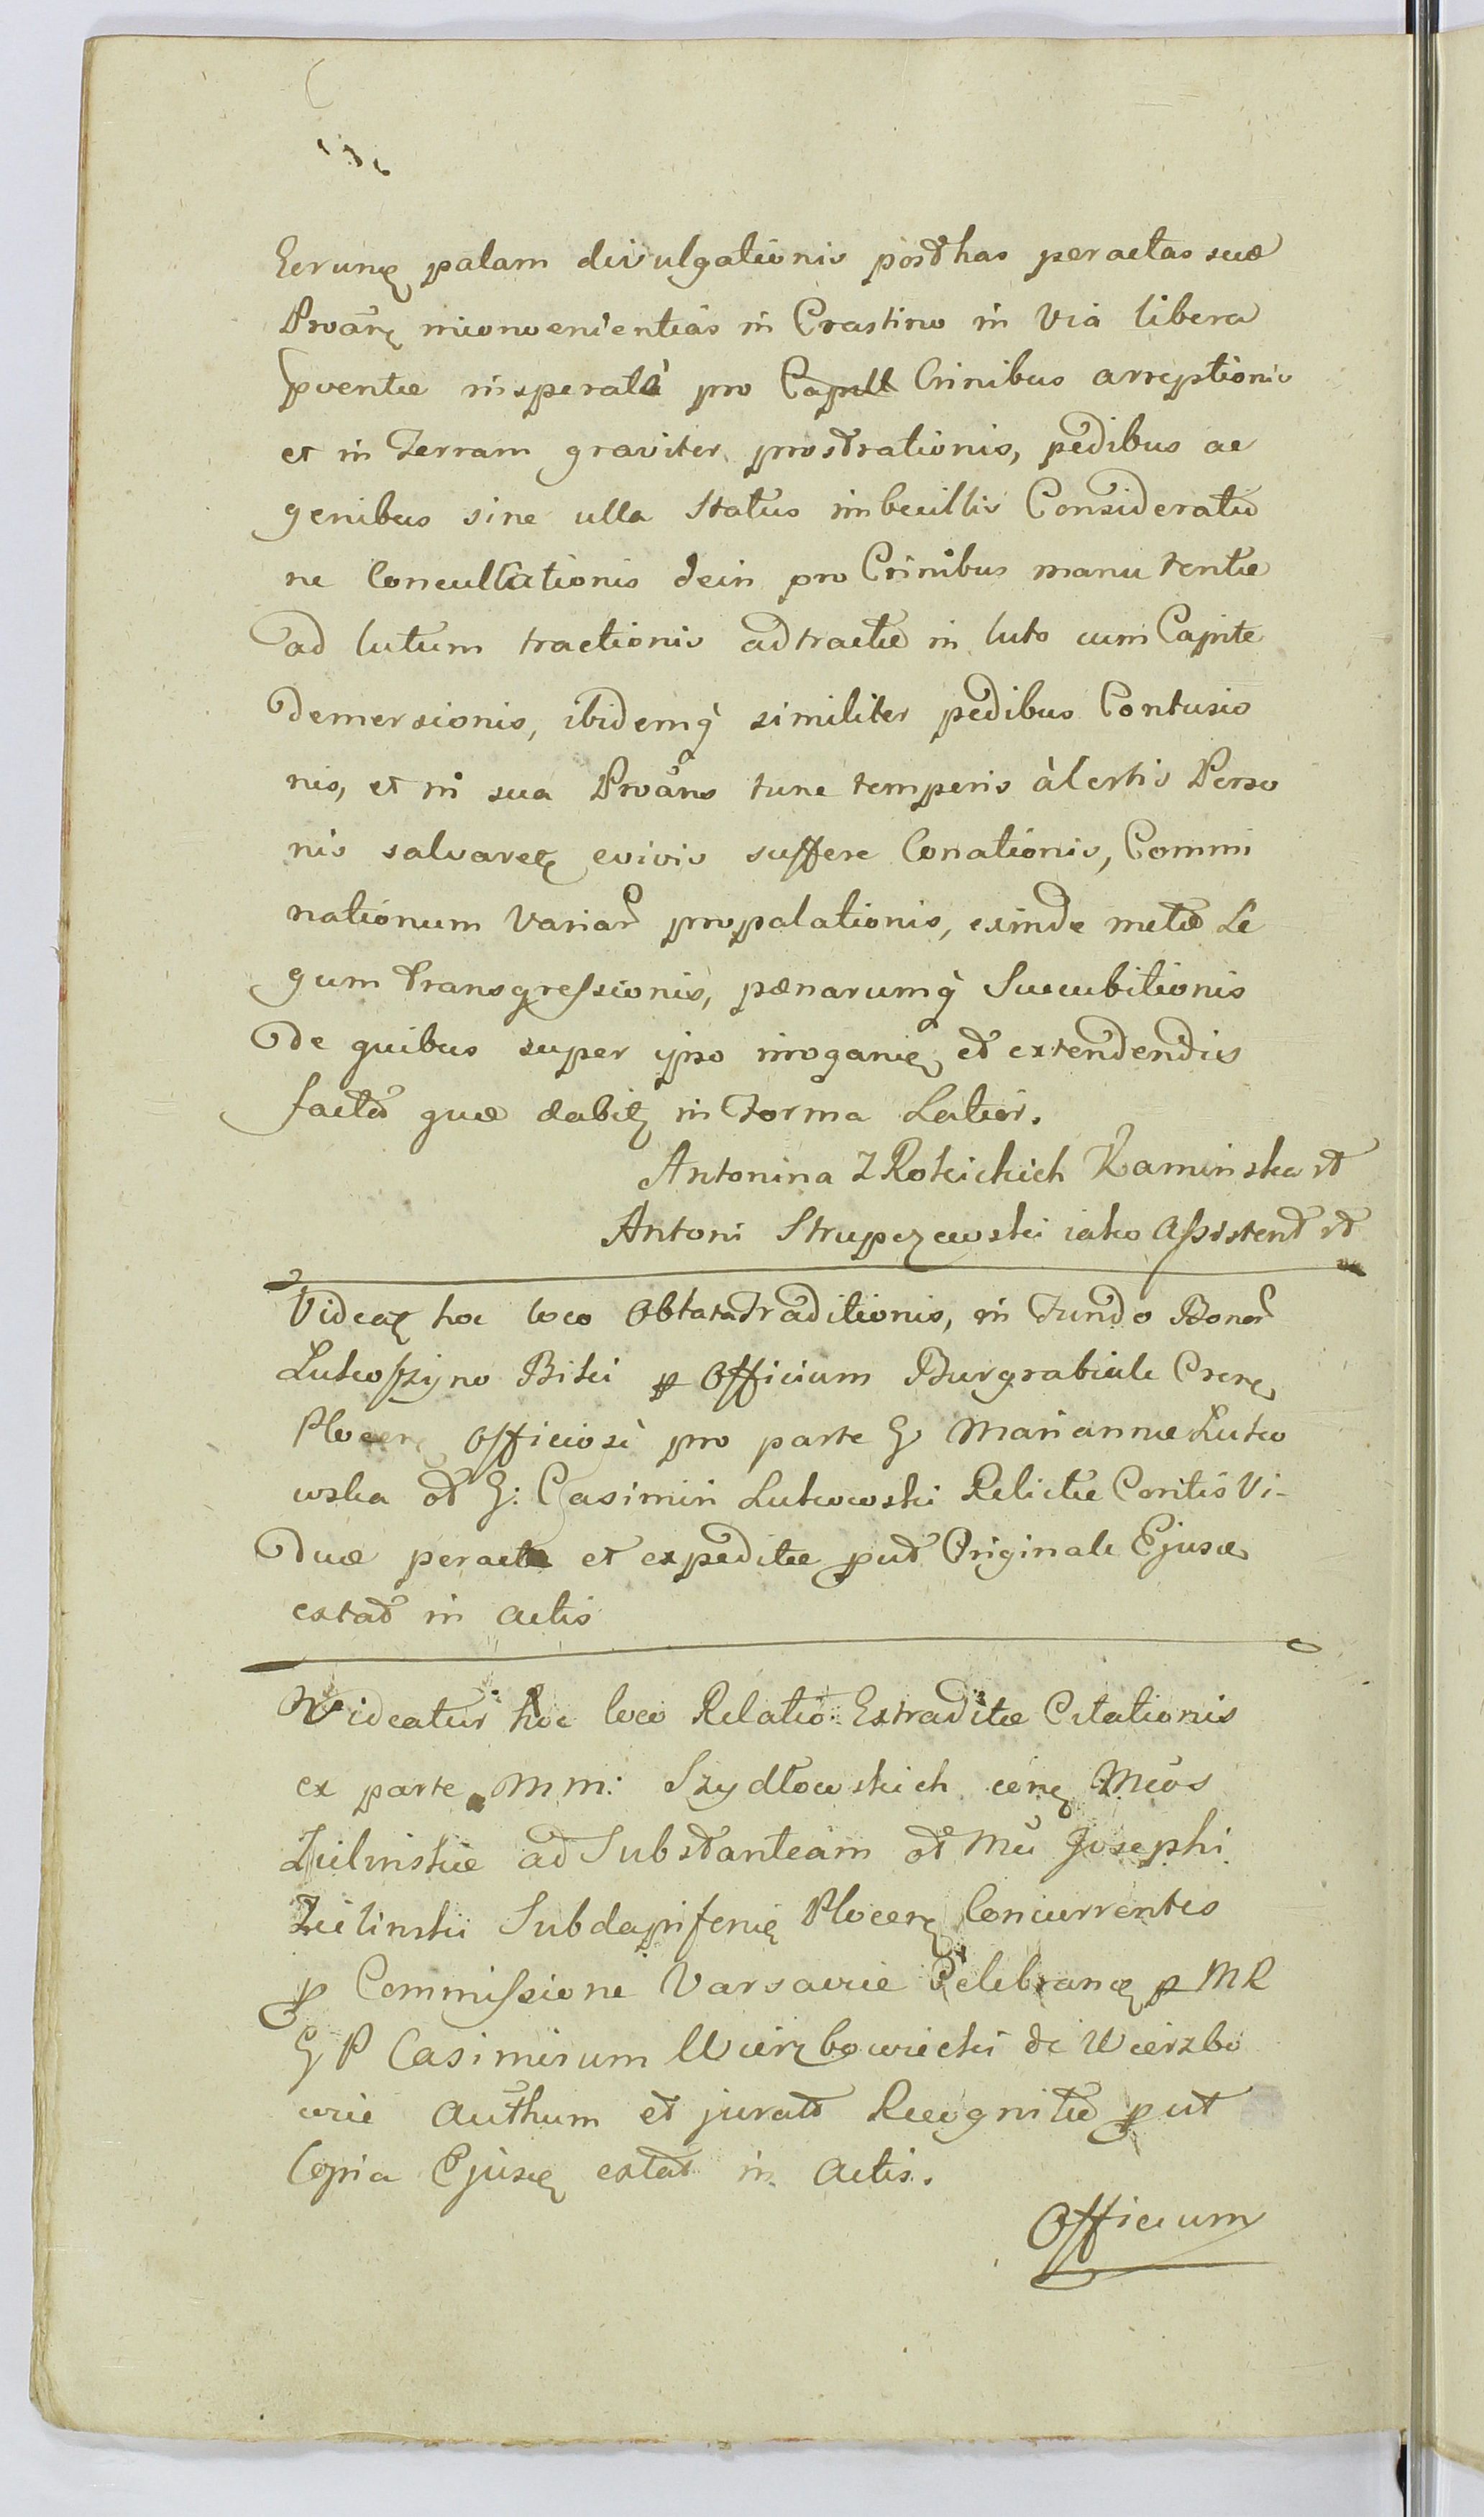 Eorunq palam divulgationis posthas peractas suæ
Proānq inconvenientias in Crastino in Via libera
pventæ insperatè pro Capill Crinibus arreptionis
et in Terram graviter prostrationis, pedibus ac
genibus sine ulla Status imbecillis Consideratio
ne Conculcationis dein pro Crinibus manu tentæ
ad lutum tractionis adtractæ in luto cum Capite
demersionis, ibidemq̀ similiter pedibus Contusio
nis, et ni sua Proāns tunc temporis àlertis Perso
nis salvaretq evivis suffere Conationis, Commi
nationum Variar propalationis, exinde metû Le
gum transgressionis, pænarumq̀ Succubitionis
de quibus super ipso irrogan et extendendis
factô quæ dabitq in Forma Latior.
Antonina Z Rokickich Kaminska st
Antoni Strupczewski iako Assistent st
Videatq hoc loco Oblata Traditionis, in Fundo Bonor
Lutkossyno Bitki p Officium Burgrabiale Cren
Plocen officiosè pro parte G Mariannæ Lutko
wska ot G: Casimiri Lutkowski Relictæ Contis Vi-
duæ peractæ et expeditæ put Originale Ejusd
extat in Actis
Videatur hoc loco Relatio Extraditæ Citationis
ex parte MM: Szydłowskich con Mcos
Zielinskie ad Substantiam ot Mci Josephi
Zielinski Subdapiferi Plocen Concurrentes
p Commissione Varsaviæ Celebran p MR
G P Casimirum Wierzbowiecki de Wierzbo
wie Authum et jurat Recognitû put
Copia Ejusd extat in Actis.
Officium